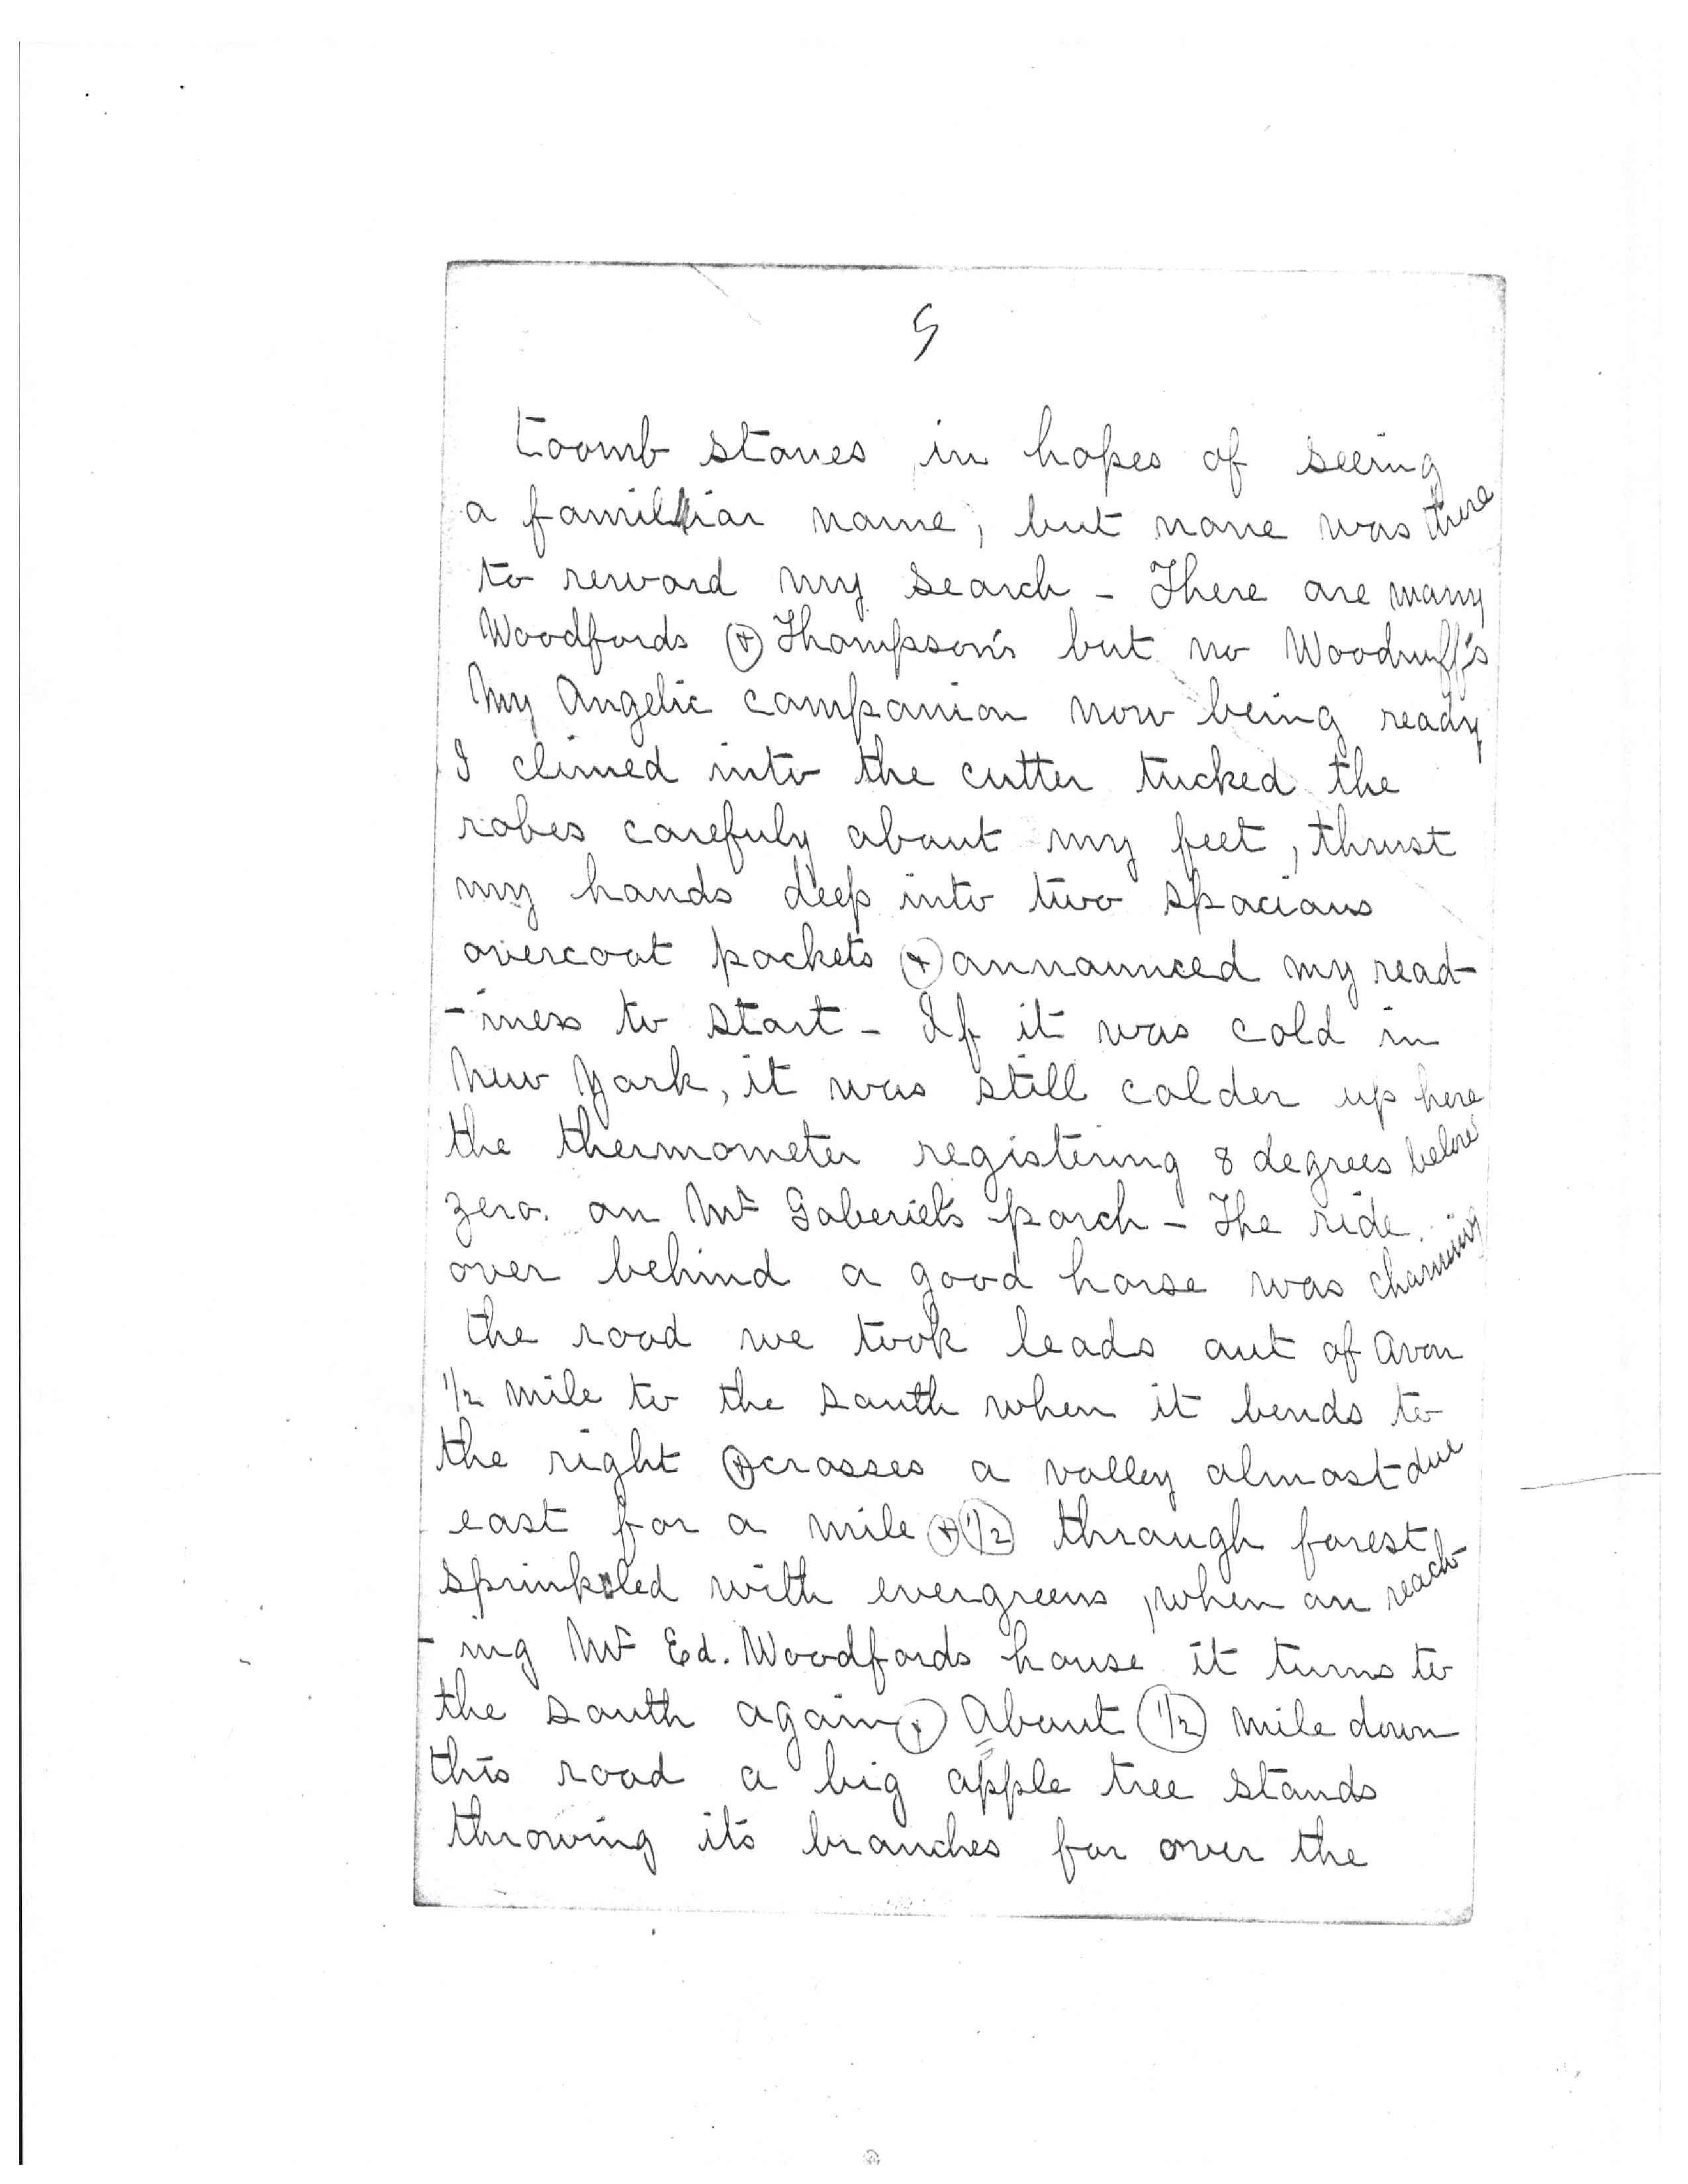 9
toomb stones in hopes of seeing
a familiar name, but none was there
to reward my search - There are many
Woodfords & Thompson's but no Woodruff's
My Angelic companion now being ready
I climed into the cutter tucked the
robes carefuly about my feet, thrust
my hands deep into two spacious
overcoat pockets & announced my read-
-iness to start - If it was cold in
New York, it was still colder up here
the thermometer registering 8 degrees below
zero. on Mr Gaberiel's porch - The ride
over behind a good horse was charming
the road we took leads out of Avon
1/2 mile to the south when it bends to
the right & crosses a valley almost due
east for a mile & 1/2 through forest
sprinkled with evergreens, when on reach-
-ing Mr Ed. Woodfords house it turns to
the south again, About 1/2 mile down
this road a big apple tree stands
throwing its branches far over the